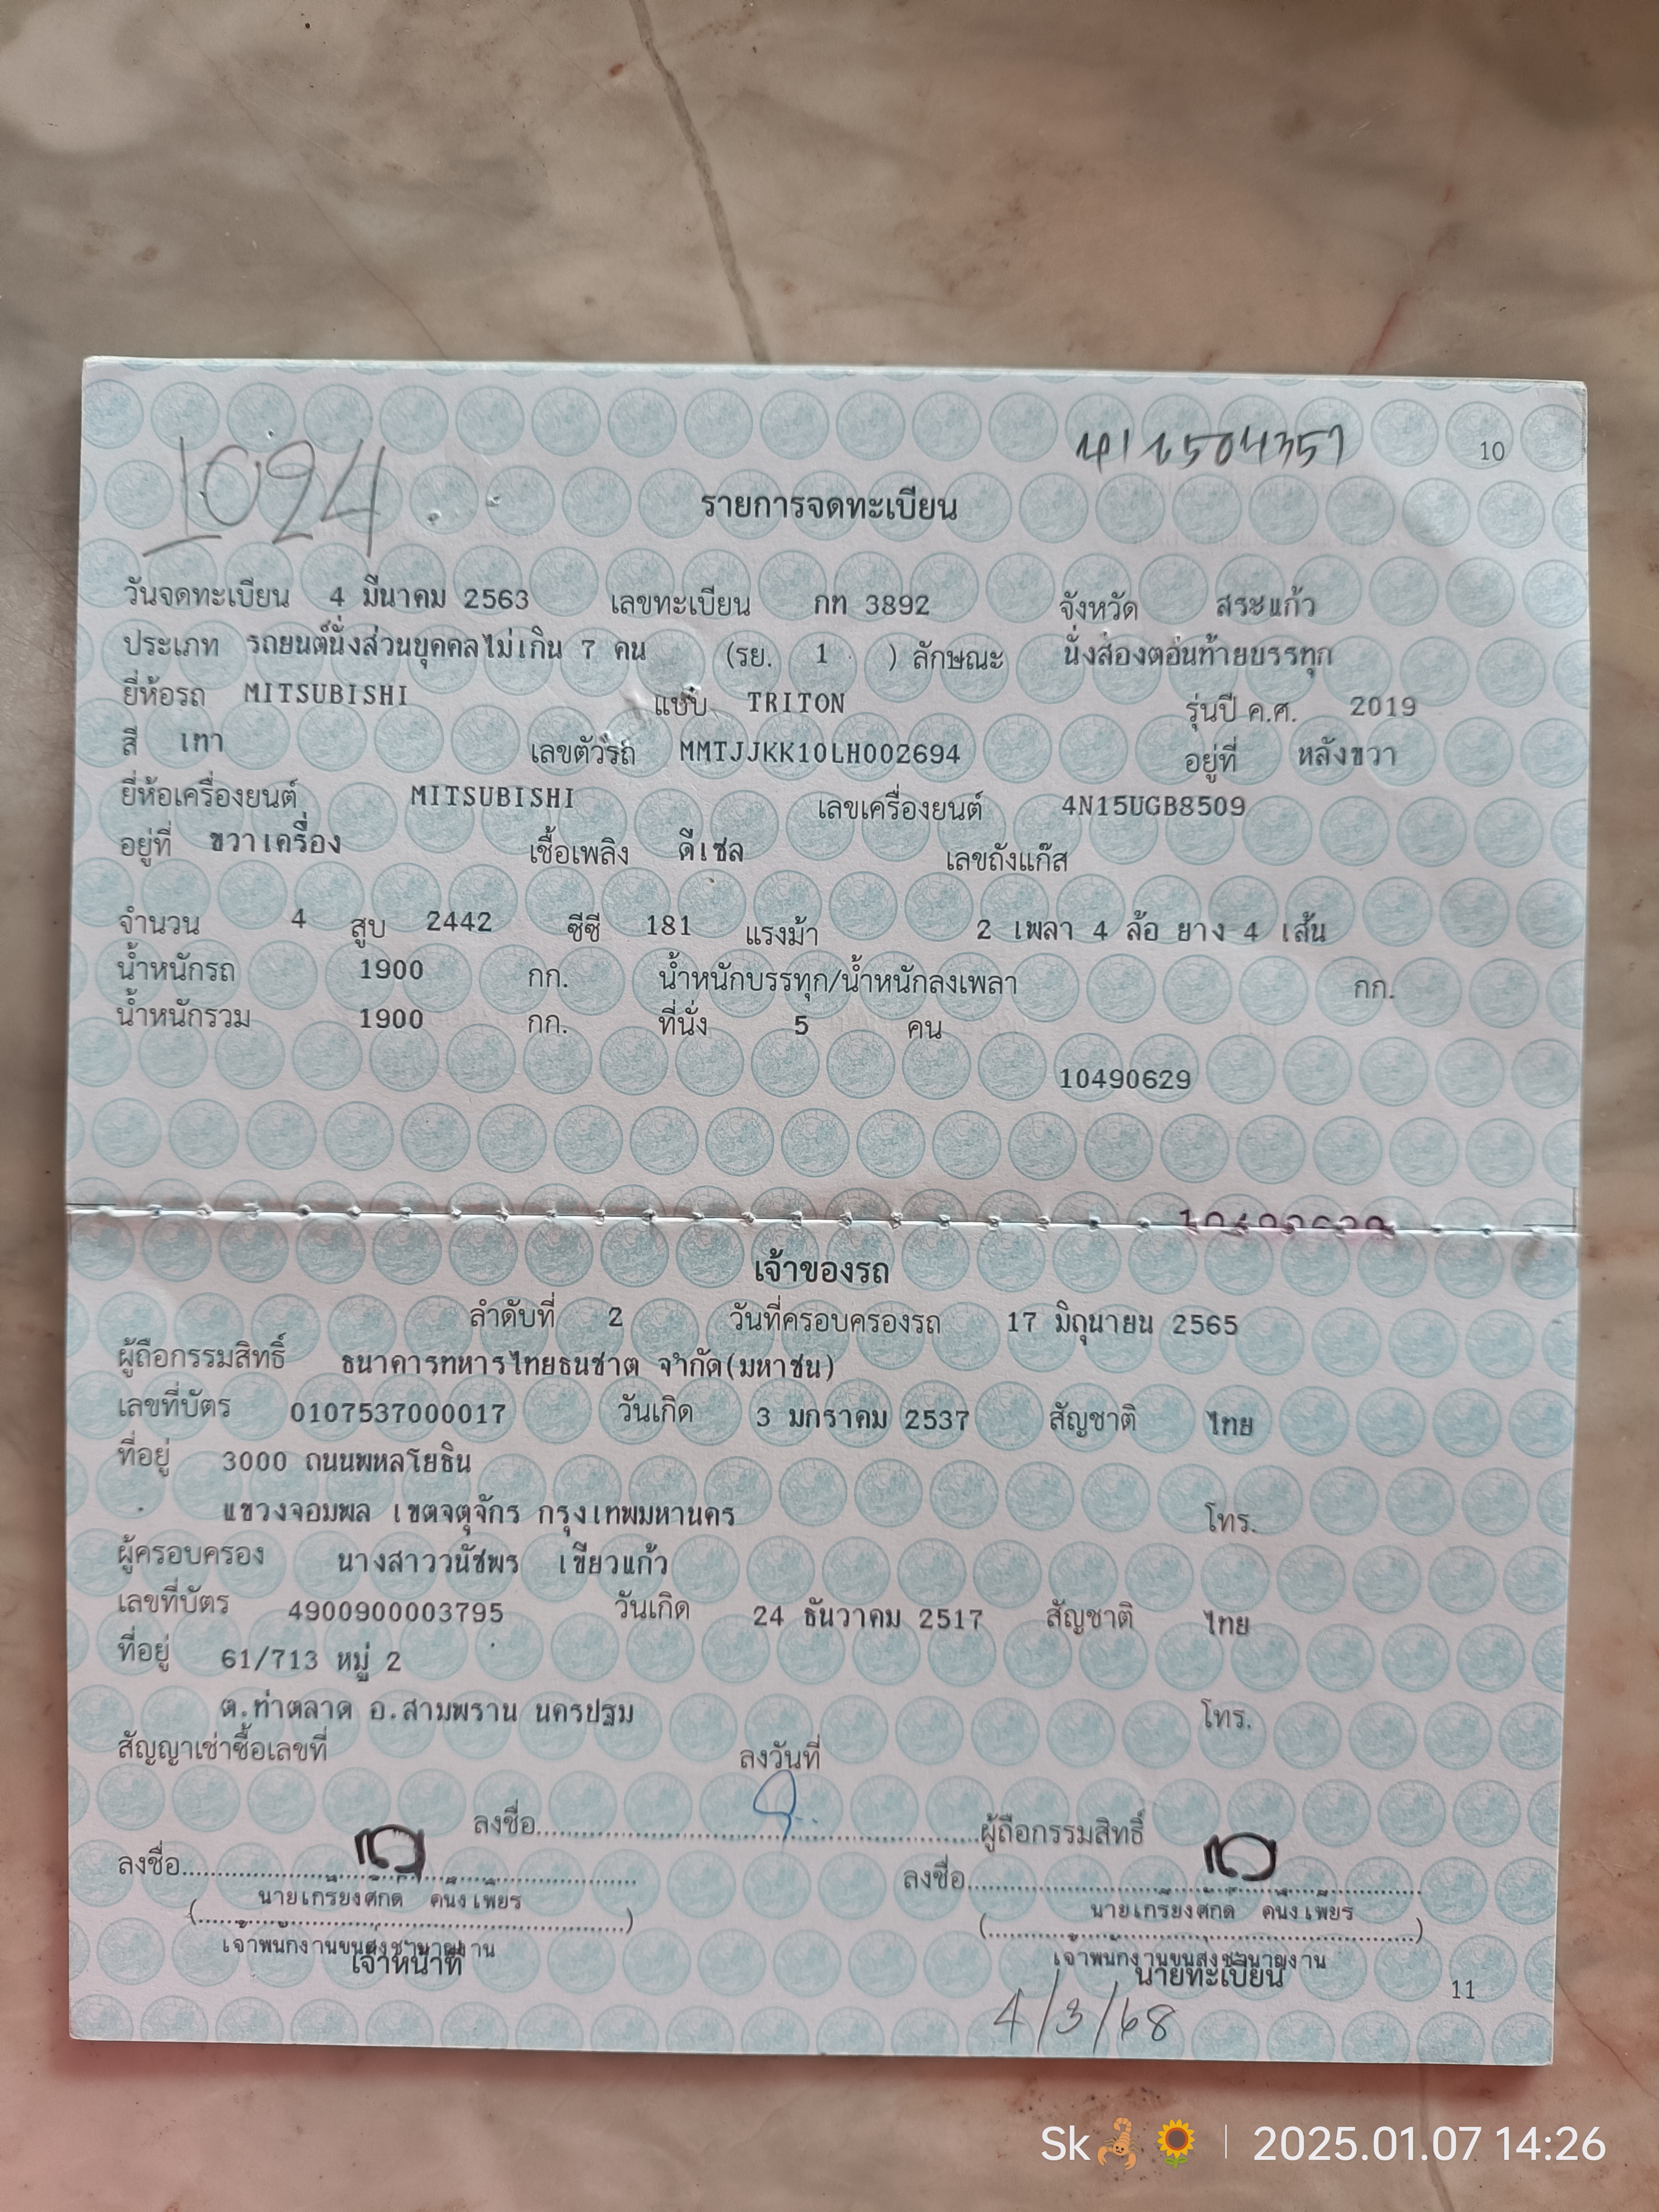 1094
416504357
10
รายการจดทะเบียน
วันจดทะเบียน 4 มีนาคม 2563 เลขทะเบียน กท 3892 จังหวัด สระแก้ว
ประเภท รถยนต์นั่งส่วนบุคคลไม่เกิน 7 คน (รย. 1 ) ลักษณะ นั่งสองตอนท้ายบรรทุก
ยี่ห้อรถ MITSUBISHI แบบ TRITON รุ่นปี ค.ศ. 2019
สี เทา เลขตัวรถ MMTJJKK10LH002694 อยู่ที่ หลังขวา
ยี่ห้อเครื่องยนต์ MITSUBISHI เลขเครื่องยนต์ 4N15UGB8509
อยู่ที่ ขวาเครื่อง เชื้อเพลิง ดีเซล เลขถังแก๊ส
จำนวน 4 สูบ 2442 ซีซี 181 แรงม้า 2 เพลา 4 ล้อ ยาง 4 เส้น
น้ำหนักรถ 1900 กก. น้ำหนักบรรทุก/น้ำหนักลงเพลา กก.
น้ำหนักรวม 1900 กก. ที่นั่ง 5 คน
10490629
เจ้าของรถ
ลำดับที่ 2 วันที่ครอบครองรถ 17 มิถุนายน 2565
ผู้ถือกรรมสิทธิ์ ธนาคารทหารไทยธนชาต จำกัด(มหาชน)
เลขที่บัตร 0107537000017 วันเกิด 3 มกราคม 2537 สัญชาติ ไทย
ที่อยู่ 3000 ถนนพหลโยธิน
แขวงจอมพล เขตจตุจักร กรุงเทพมหานคร โทร.
ผู้ครอบครอง นางสาววนัชพร เขียวแก้ว
เลขที่บัตร 4900900003795 วันเกิด 24 ธันวาคม 2517 สัญชาติ ไทย
ที่อยู่ 61/713 หมู่ 2
ต.ท่าตลาด อ.สามพราน นครปฐม โทร.
สัญญาเช่าซื้อเลขที่ ลงวันที่
ลงชื่อ ผู้ถือกรรมสิทธิ์
ลงชื่อ ลงชื่อ
นายเกรียงศักดิ์ คนึงเพียร นายเกรียงศักดิ์ คนึงเพียร
เจ้าพนักงานขนส่งชำนาญงาน เจ้าพนักงานขนส่งชำนาญงาน
เจ้าหน้าที่ นายทะเบียน
11
4/3/68
Sk🦂🌻 | 2025.01.07 14:26